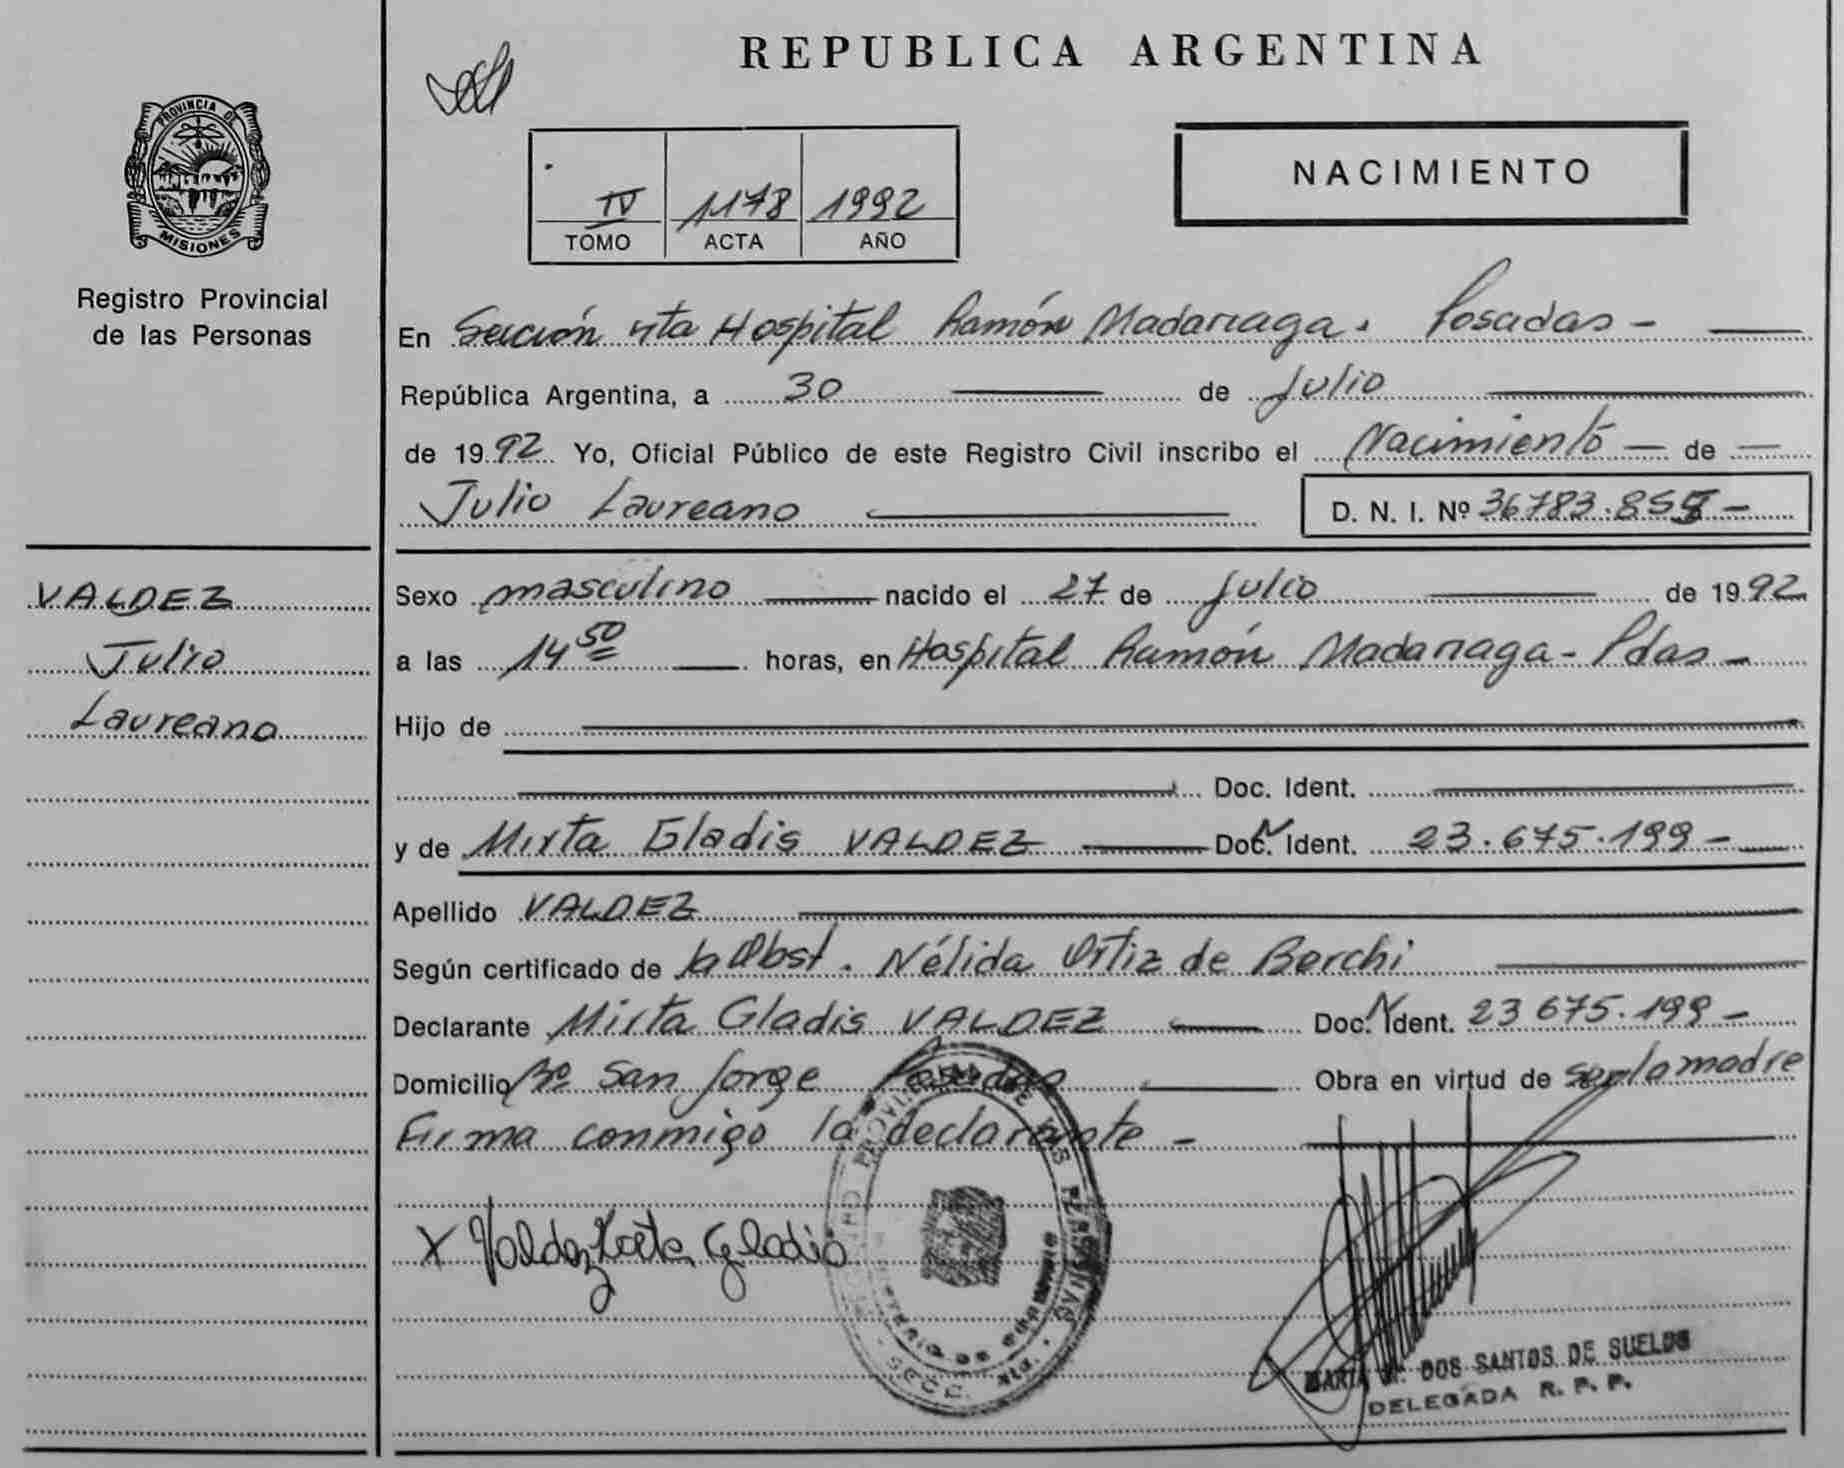 REPUBLICA ARGENTINA
PROVINCIA DE
MISIONES
Registro Provincial
de las Personas
IV 1178 1992
TOMO ACTA AÑO
NACIMIENTO
En Sección 4ta Hospital Ramón Madariaga. Posadas -
República Argentina, a 30 de Julio
de 1992 Yo, Oficial Público de este Registro Civil inscribo el Nacimiento - de -
Julio Laureano
D. N. I. Nº 36783.855 -
VALDEZ
Julio
Laureano
Sexo masculino nacido el 27 de Julio de 1992
a las 14 50 horas, en Hospital Ramón Madariaga - Pdas -
Hijo de
Doc. Ident.
y de Mirta Gladis VALDEZ Doc. Ident. 23.675.199 -
Apellido VALDEZ
Según certificado de la Obst. Nélida Ortiz de Berchi
Declarante Mirta Gladis VALDEZ Doc. Ident. 23 675.199 -
Domicilio Bº San Jorge Posadas Obra en virtud de ser la madre
Firma conmigo la declarante -
X Valdez Gladis
DOS SANTOS DE SUELDO
DELEGADA R. P. P.